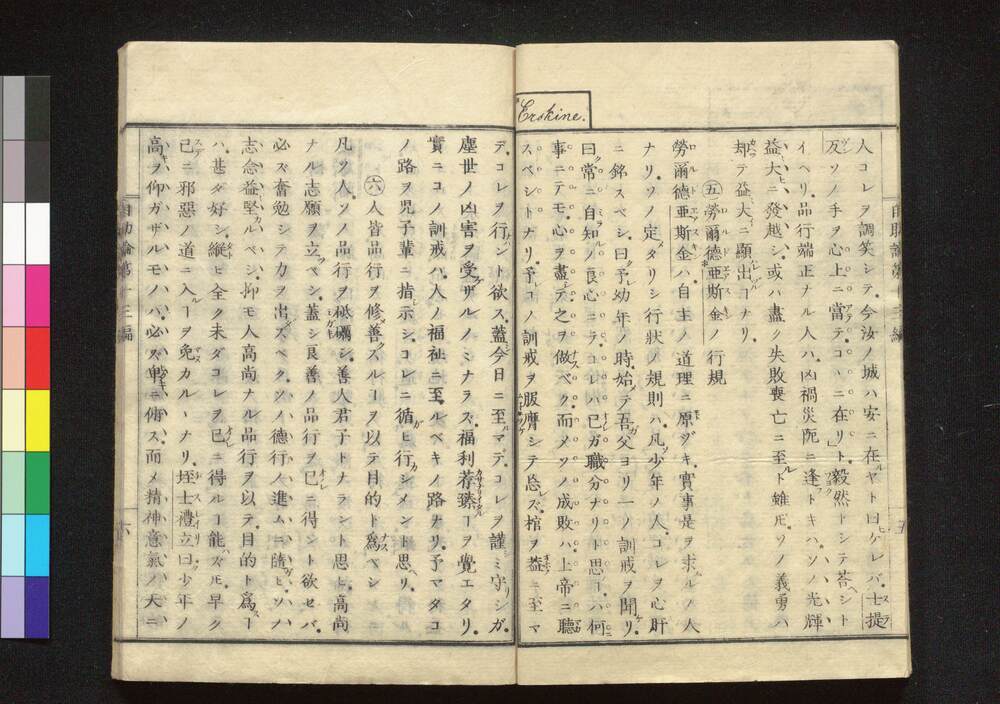 Erskine.
人コレヲ調笑シテ、今汝ノ城ハ安ニ在ヤト曰ケレバ、士提
反ソノ手ヲ心上ニ當テ、コヽニ在リト、毅然トシテ荅シト
イヘリ、品行端正ナル人ハ、凶禍災阨ニ逢トキハ、ソノ光輝
益大ニ發越シ、或ハ盡ク失敗喪亡ニ至ルト雖𪜈、ソノ義勇ハ
却テ益大ニ顯出スルヿナリ、
㊄勞爾德亜斯金ノ行規
勞爾德亜斯金ハ、自主ノ道理ニ原ヅキ、實事是ヲ求ルノ人
ナリ、ソノ定メタリシ行狀ノ規則ハ、凡ソ少年ノ人、コレヲ心肝
ニ銘スベシ、曰ク予幼年ノ時、始テ吾父ヨリ一ノ訓戒ヲ聞リ、
曰ク常ニ自知ノ良心ニテ、コレハ己ガ職分ナリト思フヿハ、何
事ニテモ、心ヲ盡シテ之ヲ做スベク、而メソノ成敗ハ、上帝ニ聽
スベシトナリ、予コノ訓戒ヲ服膺シテ忘レズ、棺ヲ葢ニ至マ
デ、コレヲ行ント欲ス、蓋シ今日ニ至ルマデ、コレヲ謹ミ守リシガ、
塵世ノ凶害ヲ受ザルノミナラズ、福利荐臻ヿヲ覺エタリ、
實ニコノ訓戒ハ、人ノ福祉ニ至ルベキノ路ナリ、予マタコ
ノ路ヲ児子輩ニ指示シ、コレニ循ヒ行カシメント思ヘリ、
㊅人皆品行ヲ修善スルヿヲ以テ目的ト為ベシ
凡ソ人、ソノ品行ヲ砥礪シ、善人君子トナラント思ヒ、高尚
ナル志願ヲ立ベシ、蓋シ良善ノ品行ヲ己ニ得ント欲セバ、
必ズ奮勉シテ力ヲ出スベク、ソノ德行ノ進ムニ隨ヒ、ソノ
志念益堅カルベシ、抑モ人高尚ナル品行ヲ以テ、目的ト為スヿ
ハ、甚ダ好シ、縱ヒ全ク未ダコレヲ己ニ得ルヿ能ハズ𪜈、早ク
已ニ邪惡ノ道ニ入ルヿヲ免カルヽナリ、垤士禮立曰ク少年ノ
高ヲ仰ガザルモノハ、必ズ卑ニ俯ス、而メ精神意氣ノ大ニ
自助論第十三編
六